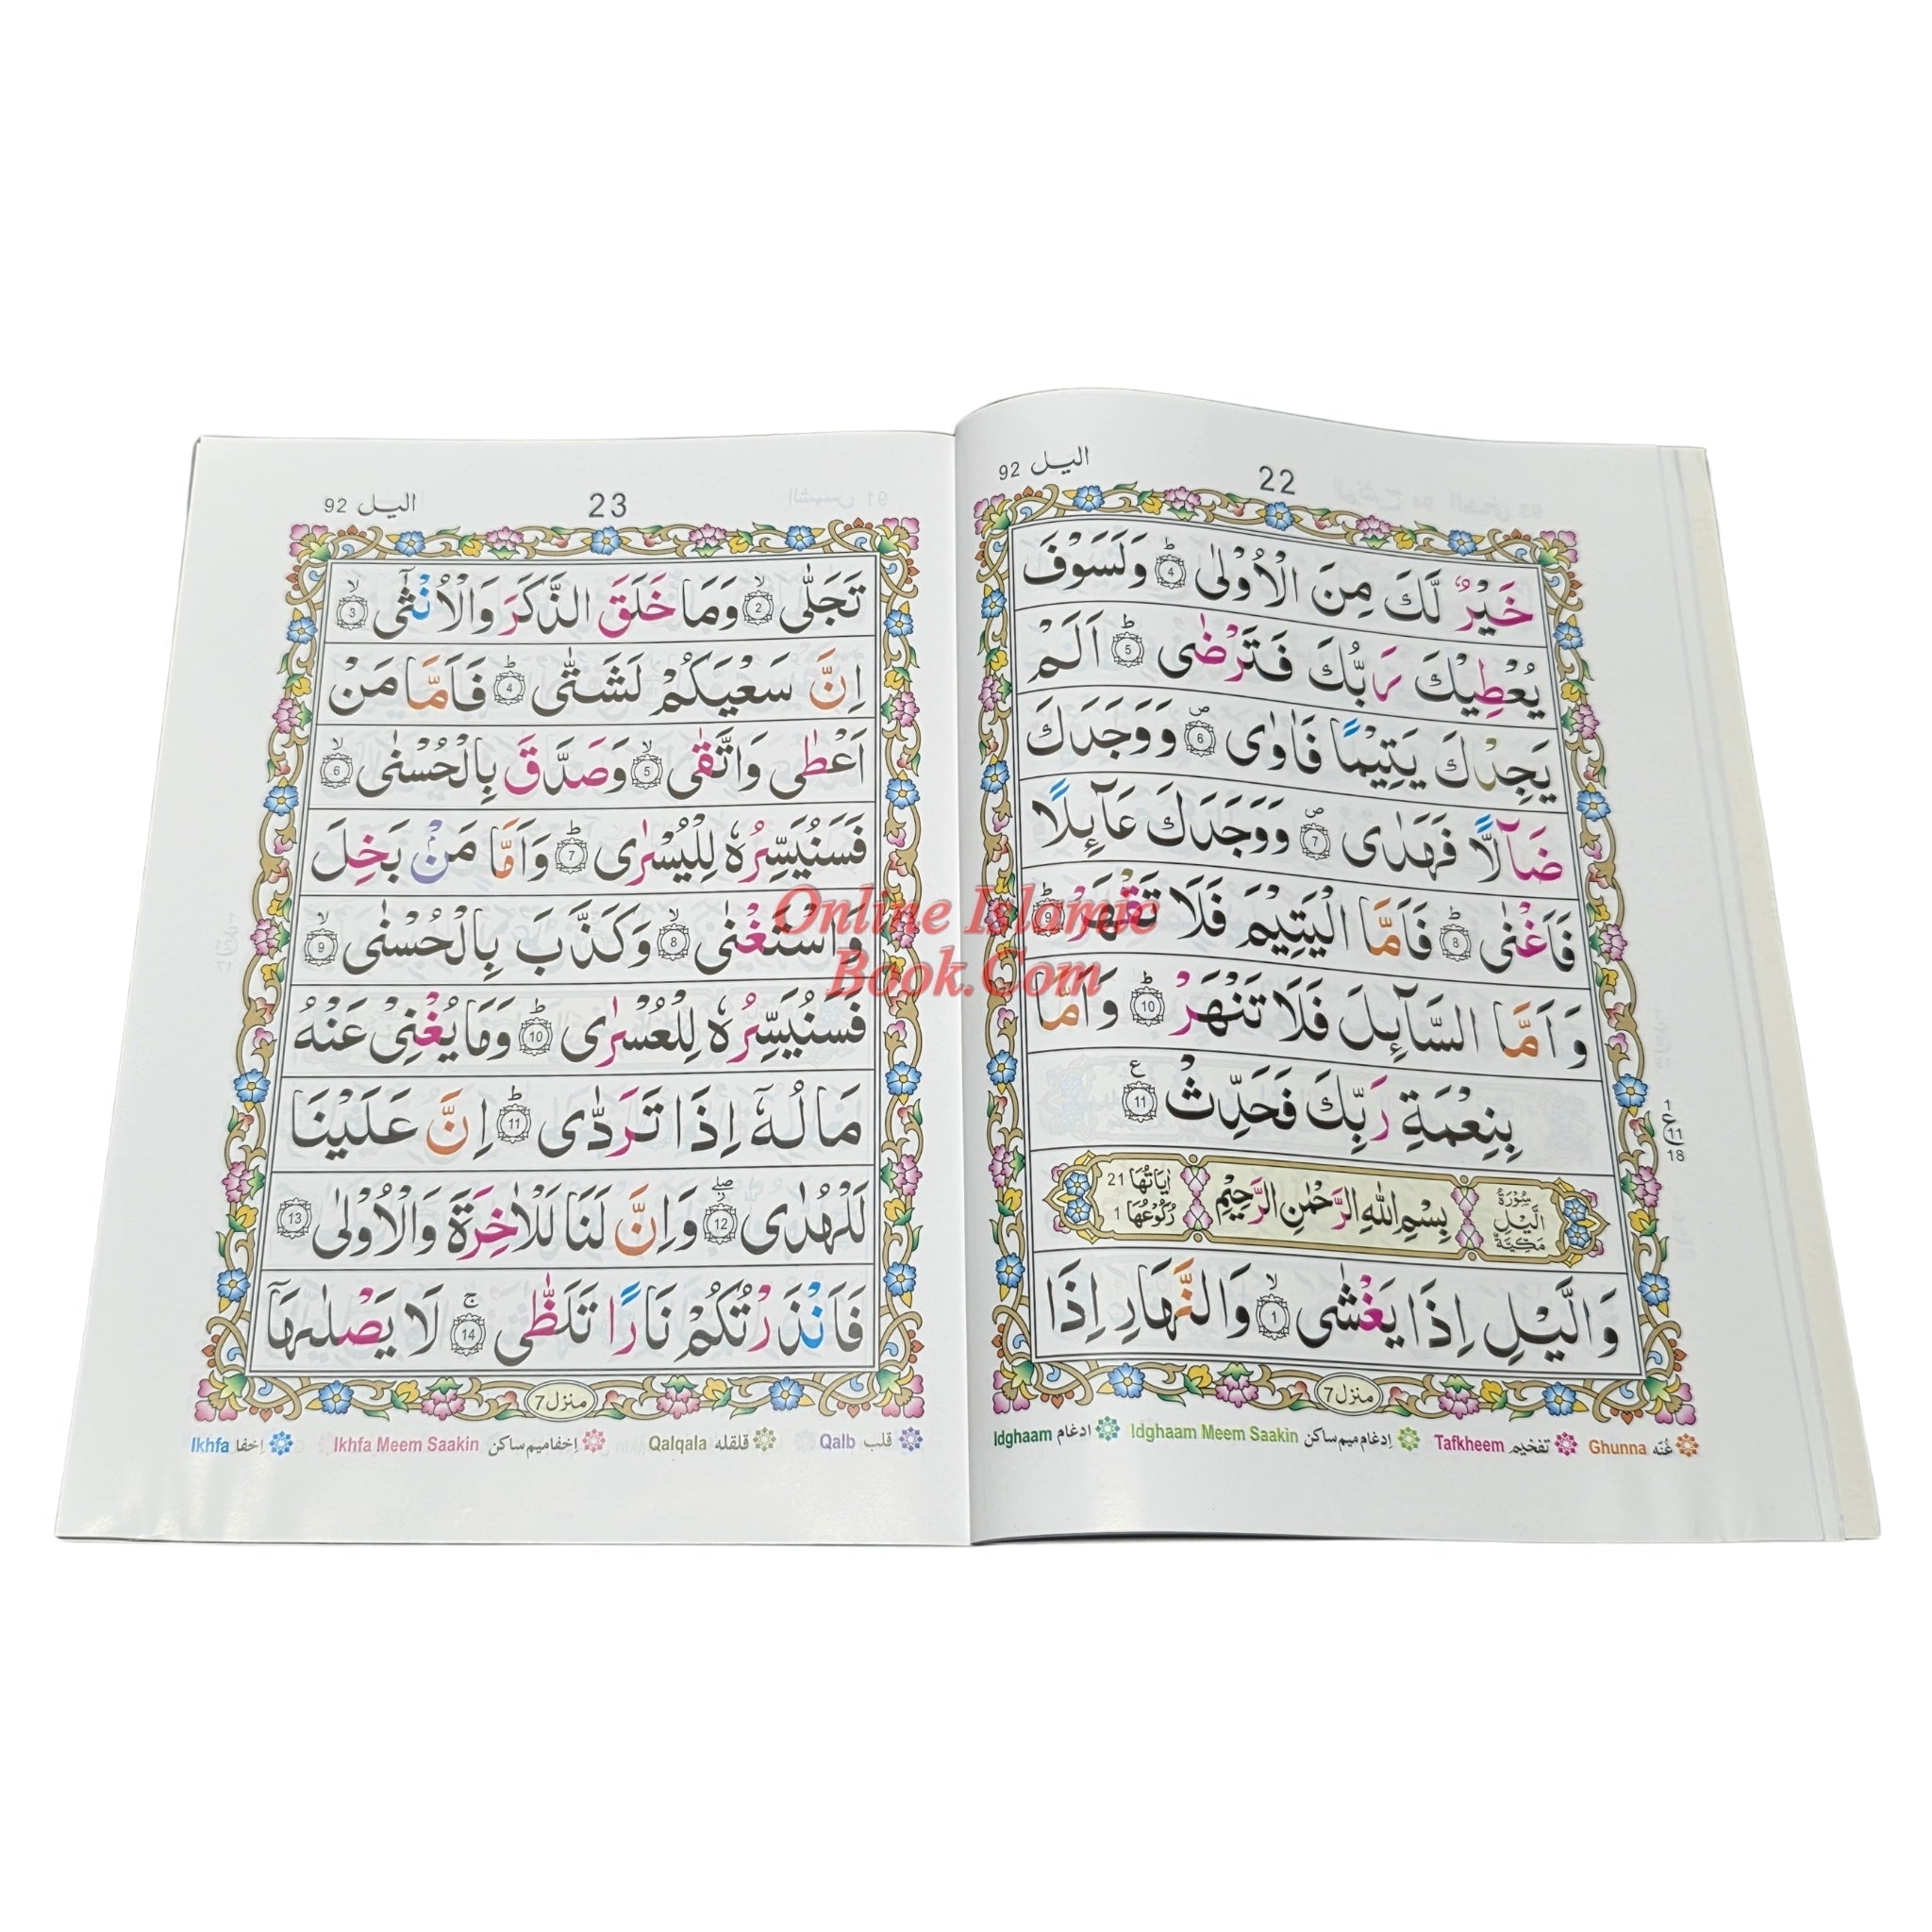 الیل 92
22
خَیْرٌ لَّكَ مِنَ الْاُوْلٰی ؕ4 وَلَسَوْفَ
یُعْطِیْكَ رَبُّكَ فَتَرْضٰی ؕ5 اَلَمْ
یَجِدْكَ یَتِیْمًا فَاٰوٰی ۪6 وَوَجَدَكَ
ضَآلًّا فَهَدٰی ۪7 وَوَجَدَكَ عَآىِٕلًا
فَاَغْنٰی ؕ8 فَاَمَّا الْیَتِیْمَ فَلَا تَقْهَرْ ؕ9
وَاَمَّا السَّآىِٕلَ فَلَا تَنْهَرْ ؕ10 وَاَمَّا
بِنِعْمَةِ رَبِّكَ فَحَدِّثْ 11 ع
1
ع
11
18
سُوْرَةُ الَّیْلِ مَكِّیَّةٌ
بِسْمِ اللّٰهِ الرَّحْمٰنِ الرَّحِیْمِ
اٰیَاتُهَا 21
رُكُوْعُهَا 1
وَالَّیْلِ اِذَا یَغْشٰی ۙ1 وَالنَّهَارِ اِذَا
منزل 7
غُنّه Ghunna تفخیم Tafkheem اِدغام میم ساکن Idghaam Meem Saakin ادغام Idghaam
الیل 92
23
تَجَلّٰی ۙ2 وَمَا خَلَقَ الذَّكَرَ وَالْاُنْثٰۤی ۙ3
اِنَّ سَعْیَكُمْ لَشَتّٰی ؕ4 فَاَمَّا مَنْ
اَعْطٰی وَاتَّقٰی ۙ5 وَصَدَّقَ بِالْحُسْنٰی ۙ6
فَسَنُیَسِّرُهٗ لِلْیُسْرٰی ؕ7 وَاَمَّا مَنْۢ بَخِلَ
وَاسْتَغْنٰی ۙ8 وَكَذَّبَ بِالْحُسْنٰی ۙ9
فَسَنُیَسِّرُهٗ لِلْعُسْرٰی ؕ10 وَمَا یُغْنِیْ عَنْهُ
مَالُهٗۤ اِذَا تَرَدّٰی ؕ11 اِنَّ عَلَیْنَا
لَلْهُدٰی ۖ12 وَاِنَّ لَنَا لَلْاٰخِرَةَ وَالْاُوْلٰی 13
فَاَنْذَرْتُكُمْ نَارًا تَلَظّٰی ۚ14 لَا یَصْلٰىهَاۤ
منزل 7
قلب Qalb قلقله Qalqala اِخفا میم ساکن Ikhfa Meem Saakin اِخفا Ikhfa
Online Islamic
Book.Com